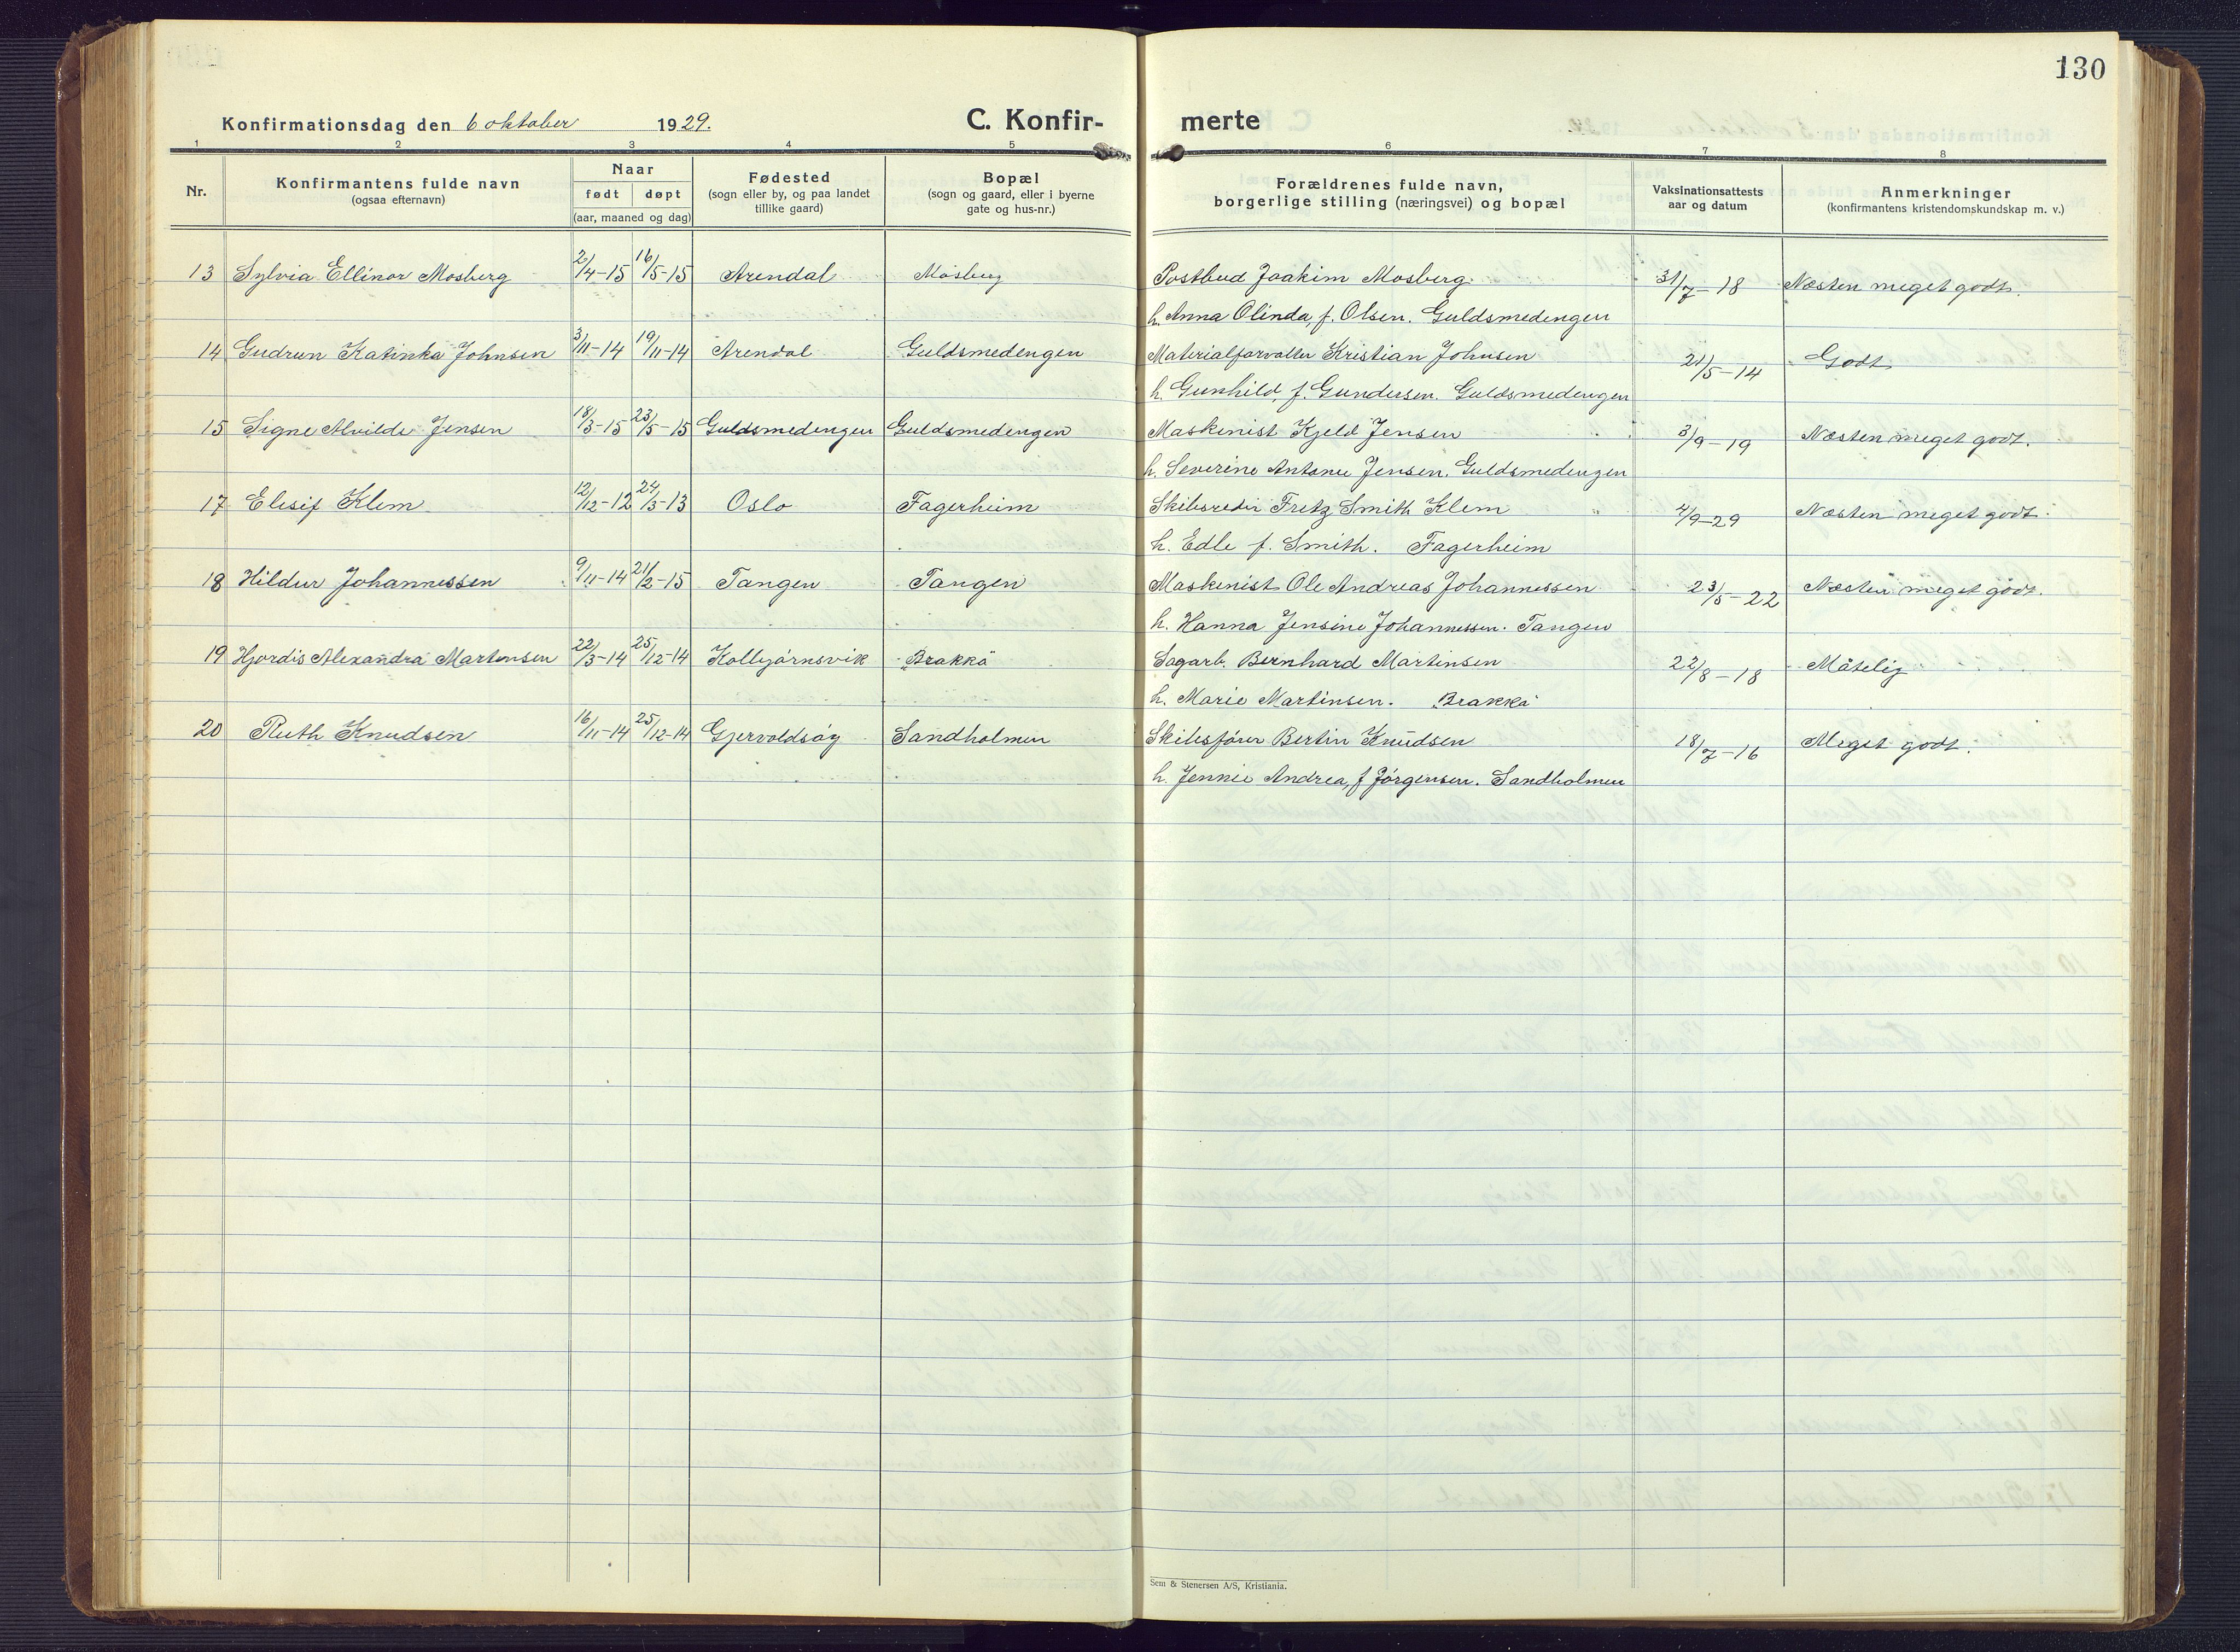 130
Konfirmationsdag den 6 oktober 1929. C. Konfir- merte
1 2 3 4 5 6 7 8
Nr. Konfirmantens fulde navn Naar Fødested Bopæl Forældrenes fulde navn, Vaksinationsattests Anmerkninger
(ogsaa efternavn) født døpt (sogn eller by, og paa landet (sogn og gaard, eller i byerne borgerlige stilling (næringsvei) og bopæl aar og datum (konfirmantens kristendomskundskap m. v.)
(aar, maaned og dag) tillike gaard) gate og hus-nr.)
13 Sylvia Ellinor Mosberg 2/4-15 16/5-15 Arendal Mosberg Postbud Joakim Mosberg 31/7-18 Næsten meget godt.
h. Anna Olinda, f. Olsen. Guldsmedengen
14 Gudrun Katinka Johnsen 3/11-14 19/11-14 Arendal Guldsmedengen Materialforvalter Kristian Johnsen 21/5-14 Godt
h. Gunhild, f. Gundersen. Guldsmedengen
15 Signe Alvilde Jensen 18/3-15 23/5-15 Guldsmedengen Guldsmedengen Maskinist Kjeld Jensen 3/9-19 Næsten meget godt.
h. Severine Antonie Jensen. Guldsmedengen
17 Elisif Klem 12/12-12 24/3-13 Oslo Fagerheim Skibsreder Fretz Smith Klem 4/9-29 Næsten meget godt.
h. Edle f. Smith. Fagerheim
18 Hildur Johannessen 9/11-14 21/2-15 Tangen Tangen Maskinist Ole Andreas Johannessen 23/5-22 Næsten meget godt.
h. Hanna Jensine Johannessen. Tangen
19 Hjordis Alexandra Martinsen 22/3-14 25/12-14 Kolbjørnsvik Brakka Sagarb. Bernhard Martinsen 22/8-18 Måtelig
h. Marie Martinsen. Brakka
20 Ruth Knudsen 16/11-14 25/12-14 Gjervoldsøy Sandholmen Skibsfører Bertin Knudsen 18/7-16 Meget godt.
h. Jennie Andrea, f Jørgensen. Sandholmen
Sem & Stenersen A/S, Kristiania.